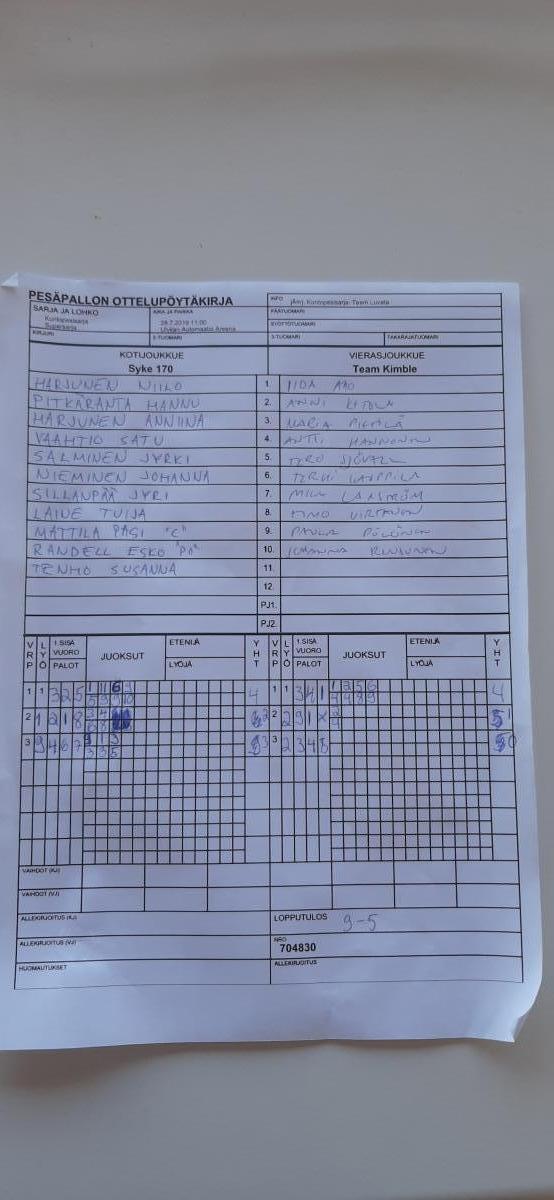 PESÄPALLON OTTELUPÖYTÄKIRJA
INFO jAmj. Kuntopesisarja: Team Luvata
SARJA JA LOHKO
Kuntopesisarja
Supersarja
AIKA JA PAIKKA
28.7.2019 11:00
Ulvilan Automaatio Areena
PÄÄTUOMARI
SYÖTTÖTUOMARI
KIRJURI
2-TUOMARI
3-TUOMARI
TAKARAJATUOMARI
KOTIJOUKKUE VIERASJOUKKUE
Syke 170 Team Kimble
HARJUNEN NIILO 1. IIDA AHO
PITKÄRANTA HANNU 2. ANNI
HARJUNEN ANNIINA 3. MARIA
VAAHTIO SATU 4. ANTTI HANNONEN
SALMINEN JYRKI 5. TERO SJÖVALL
NIEMINEN JOHANNA 6. TERHI LAMPPILA
SILLANPÄÄ JYRI 7. MIKA LANSTRÖM
LAINE TUIJA 8. TIMO VIRTANEN
MATTILA PASI "C" 9. PAULA PÖLÖNEN
RANDELL ESKO 10. JOHANNA
TENHO SUSANNA 11.
12.
PJ1.
PJ2.
VRP LYÖ 1.SISÄ VUORO PALOT JUOKSUT ETENIJÄ LYÖJÄ YHT VRP LYÖ 1.SISÄ VUORO PALOT JUOKSUT ETENIJÄ LYÖJÄ YHT
1 1 3 2 5 4 1 1 3 4 1 1 2 5 6 4
2 1 2 1 8 2 2 2 9 1 X 1
3 9 4 6 7 9 1 3 3 3 2 3 4 8 0
3 3 5
VAIHDOT (KJ)
VAIHDOT (VJ)
ALLEKIRJOITUS (KJ) LOPPUTULOS 9-5
ALLEKIRJOITUS (VJ) NRO
704830
HUOMAUTUKSET ALLEKIRJOITUS